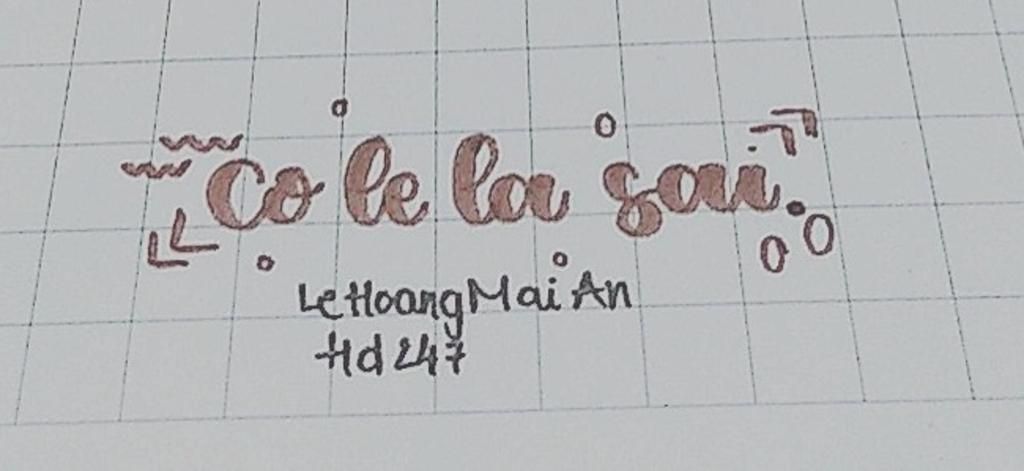 Co le la sai.
Le Hoang Mai An
Hd 247